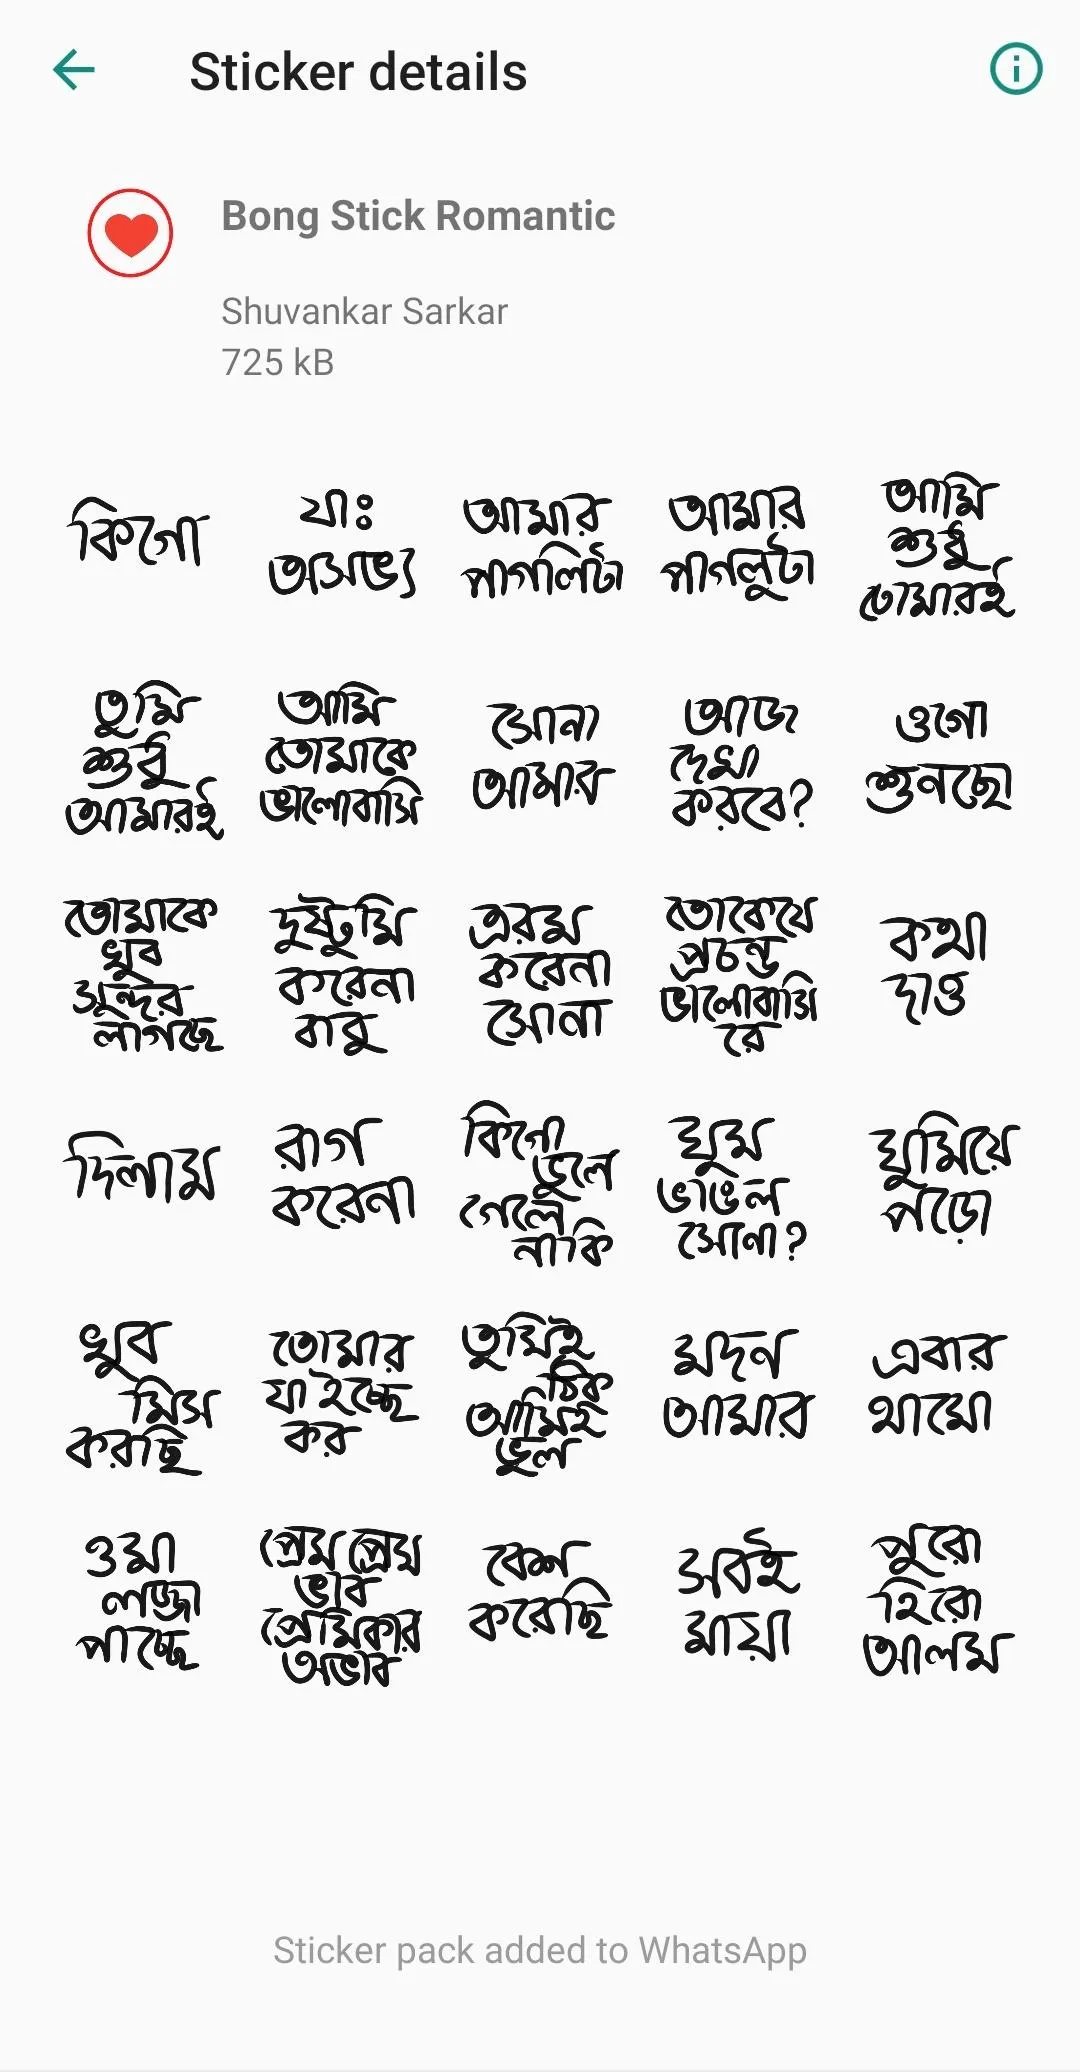 Sticker details
Bong Stick Romantic
Shuvankar Sarkar
725 kB
কিগো
যাঃ
অসভ্য
আমার
পাগলিটা
আমার
পাগলুটা
আমি
শুধু
তোমারই
তুমি
শুধু
আমারই
আমি
তোমাকে
ভালোবাসি
সোনা
আমার
আজ
দেখা
করবে?
ওগো
শুনছো
তোমাকে
খুব
সুন্দর
লাগছে
দুষ্টুমি
করেনা
বাবু
এরম
করেনা
সোনা
তোকেযে
প্রচন্ড
ভালোবাসি
রে
কথা
দাও
দিলাম
রাগ
করেনা
কিগো
ভুলে
গেলে
নাকি
ঘুম
ভাঙল
সোনা?
ঘুমিয়ে
পড়ো
খুব
মিস
করছি
তোমার
যা ইচ্ছে
কর
তুমিই
ঠিক
আমিই
ভুল
মদন
আমার
এবার
থামো
ওমা
লজ্জা
পাচ্ছে
প্রেম প্রেম
ভাব
প্রেমিকার
অভাব
বেশ
করেছি
সবই
মায়া
পুরো
হিরো
আলম
Sticker pack added to WhatsApp